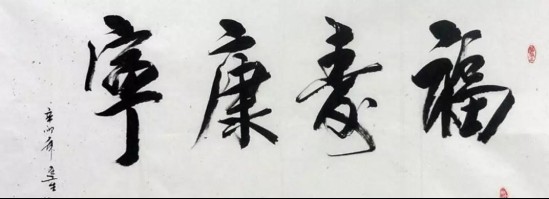 福壽康寧
辛卯年